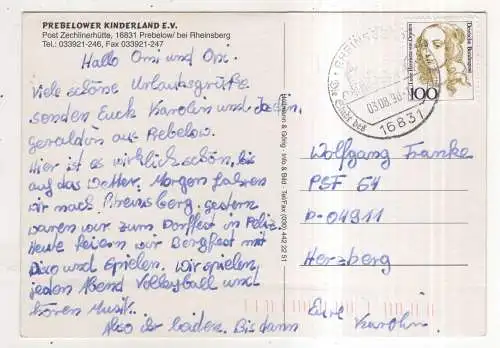 PREBELOWER KINDERLAND E.V.
Post Zechlinerhütte, 16831 Prebelow/ bei Rheinsberg
Tel.: 033921-246, Fax 033921-247
Hallo Omi und Opi.
Viele schöne Urlaubsgrüße
senden Euch Karolin und
Geraldin aus Prebelow.
Hier ist es wirklich schön, bis
auf das Wetter. Morgen fahren
wir nach Rheinsberg, gestern
waren wir zum Dorffest in
Heute feiern wir Bergfest mit
Disko und Spielen. Wir spielen
jeden Abend Volleyball und
hören Musik.
Also ihr beiden. Bis dann
Eure Karolin.
Wolfgang Franke
PSF 64
D-04911
Herzberg
Deutsche Bundespost
100
16831